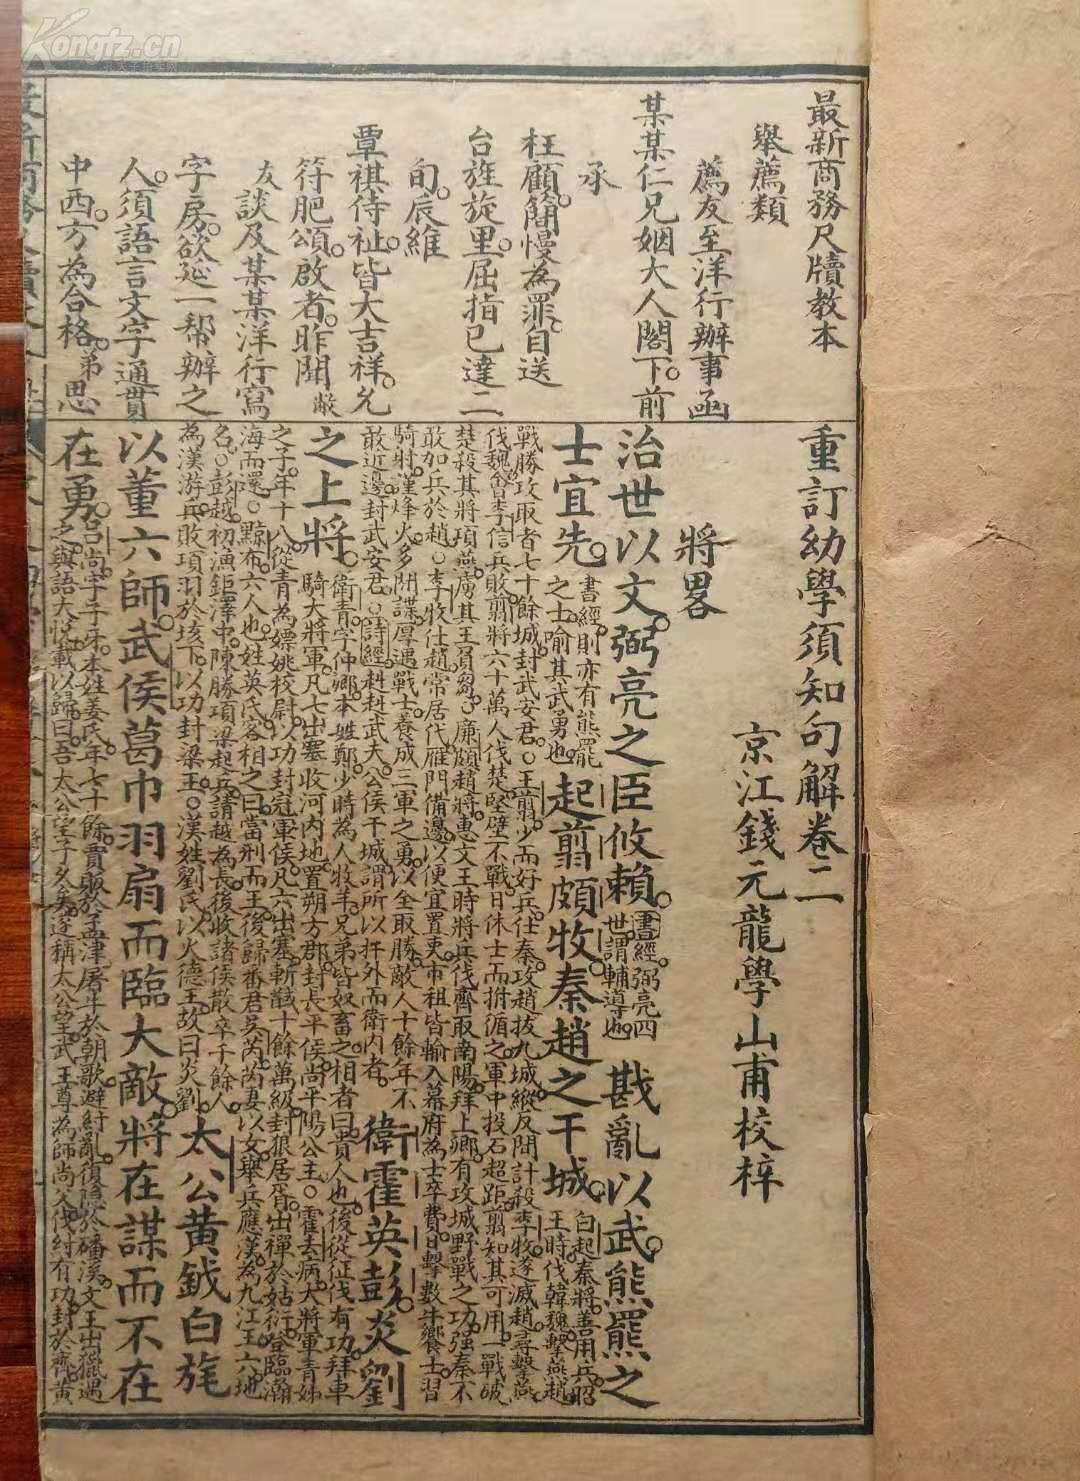 最新商務尺牘教本
舉薦類
薦友至洋行辦事函
某某仁兄姻大人閣下。前
承
枉顧。簡慢為罪。自送
台旌旋里。屈指已達二
旬。辰維
覃祺侍祉。皆大吉祥。允
符肥頌。啟者。昨聞敝
友談及某某洋行寫
字房。欲延一幫辦之
人。須語言文字通貫
中西。方為合格。弟思
重訂幼學須知句解卷二
京江錢元龍學山甫校梓
將畧
治世以文。弼亮之臣攸賴。書經弼亮四世謂輔導也 戡亂以武。熊羆之
士宜先。書經則亦有熊羆之士喻其武勇也 起翦頗牧。秦趙之干城。白起秦將善用兵昭王時伐韓魏擊燕趙
戰勝攻取者七十餘城封武安君。○王翦少而好兵仕秦攻趙拔九城縱反間計殺李牧遂滅趙尋擊燕
伐魏會李信兵敗翦將六十萬人伐楚堅壁不戰日休士而拊循之軍中投石超距翦知其可用一戰破
楚殺其將項燕虜其王負芻。廉頗趙將惠文王時將兵伐齊取南陽拜上卿有攻城野戰之功強秦不
敢加兵於趙。○李牧仕趙常居代雁門備邊以便宜置吏市租皆輸入幕府為士卒費日擊數牛饗士習
騎射謹烽火多閒諜厚遇戰士養成三軍之勇以全取勝敵人十餘年不
敢近邊封武安君。○詩經赳赳武夫公侯干城謂所以扞外而衛內者。 衛霍英彭。炎劉
之上將。衛青字仲卿本姓鄭少時為人牧羊兄弟皆奴畜之相者曰貴人也後從征伐有功拜車騎大將軍凡七出塞收河內地置朔方郡封長平侯尚平陽公主。○霍去病大將軍青姊
之子年十八從青為嫖姚校尉以功封冠軍侯凡六出塞斬馘十餘萬級封狼居胥山禪於姑衍登臨瀚
海而還。○黥布六人也姓英氏客相之曰當刑而王後歸番君吳芮芮妻以女舉兵應漢為九江王六地
名。○彭越初漁鉅澤中陳勝項梁起兵請越為長後收諸侯散卒千餘人
為漢游兵敗項羽於垓下以功封梁王。○漢姓劉氏以火德王故曰炎劉。 太公黄鉞白旄
以董六師。武侯葛巾羽扇而臨大敵。將在謀而不在
在勇。呂尚字子牙本姓姜氏年七十餘賣販於孟津屠牛於朝歌避紂亂復隱於磻溪文王出獵遇之與語大悅載以歸曰吾太公望子久矣遂稱太公望武王尊為師尚父伐紂有功封於齊黃
Kongfz.cn